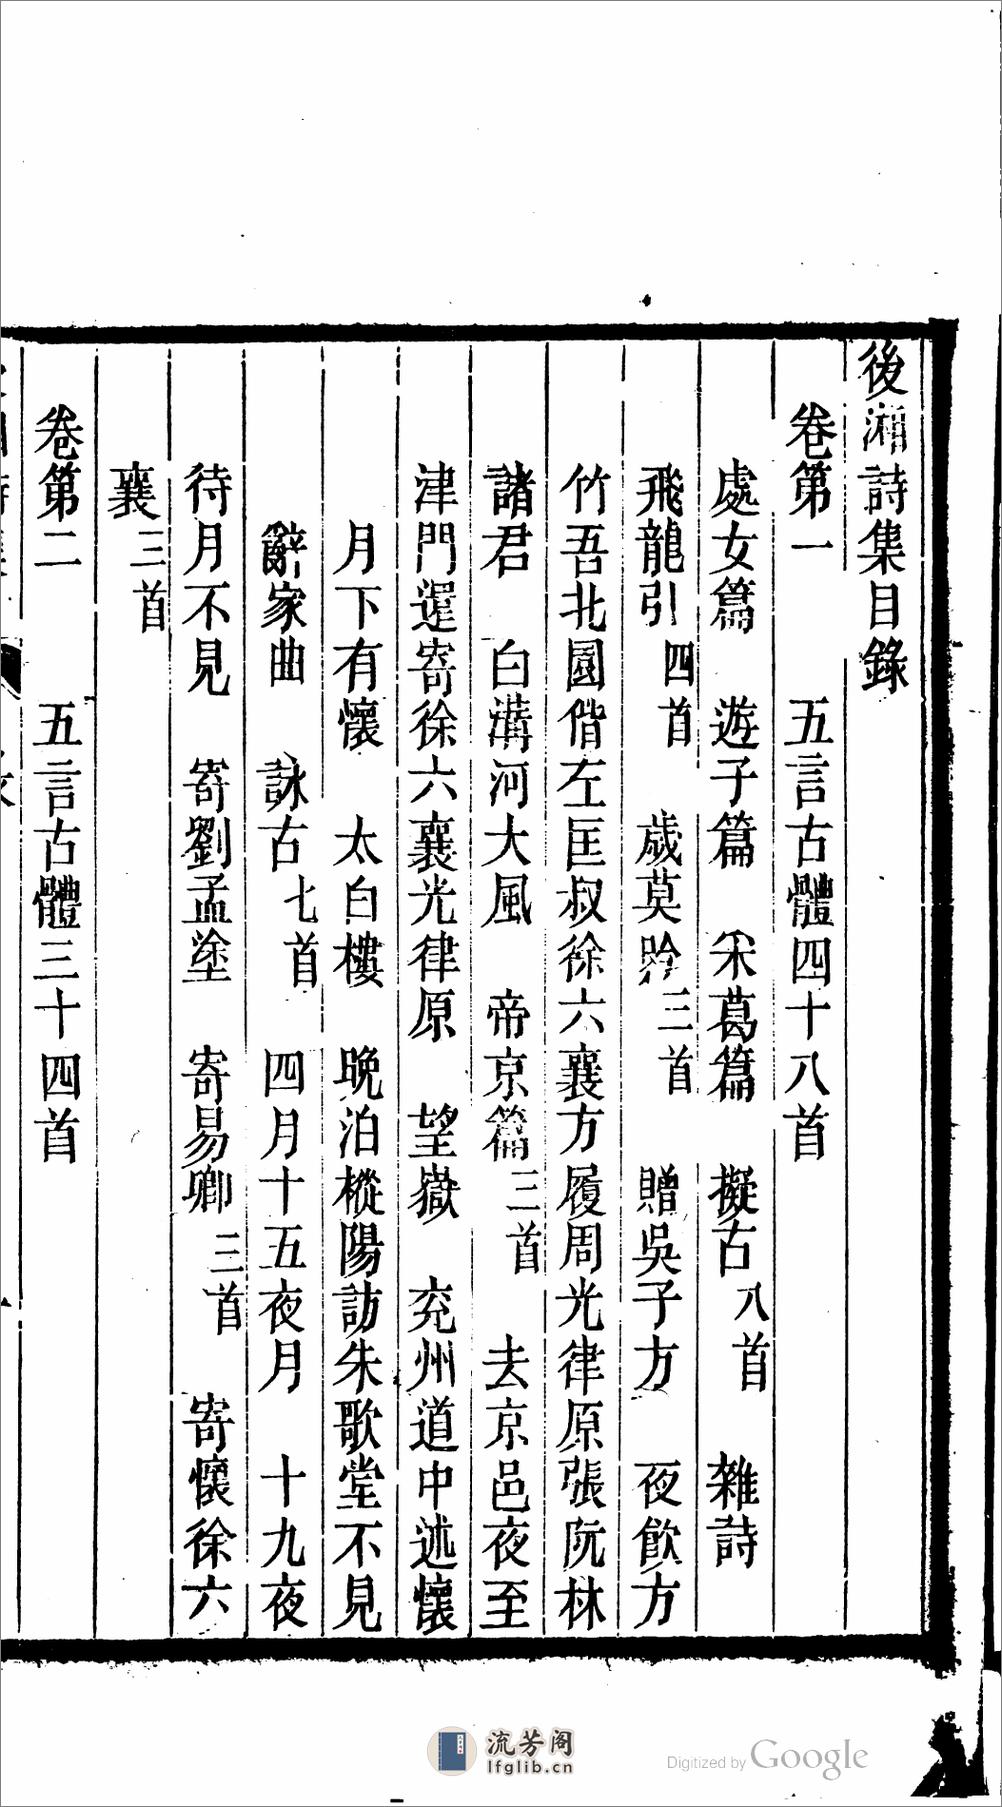 後湘詩集目錄
卷第一　五言古體四十八首
處女篇　遊子篇　采葛篇　擬古八首　雜詩
飛龍引四首　歲莫吟三首　贈吳子方　夜飲方
竹吾北園偕左匡叔徐六襄方履周光律原張阮林
諸君　白溝河大風　帝京篇三首　去京邑夜至
津門還寄徐六襄光律原　望嶽　兗州道中述懷
月下有懷　太白樓　晚泊樅陽訪朱歌堂不見
辭家曲　詠古七首　四月十五夜月　十九夜
待月不見　寄劉孟塗　寄易卿三首　寄懷徐六
襄三首
卷第二　五言古體三十四首
流芳阁
lfglib.cn
Digitized by Google